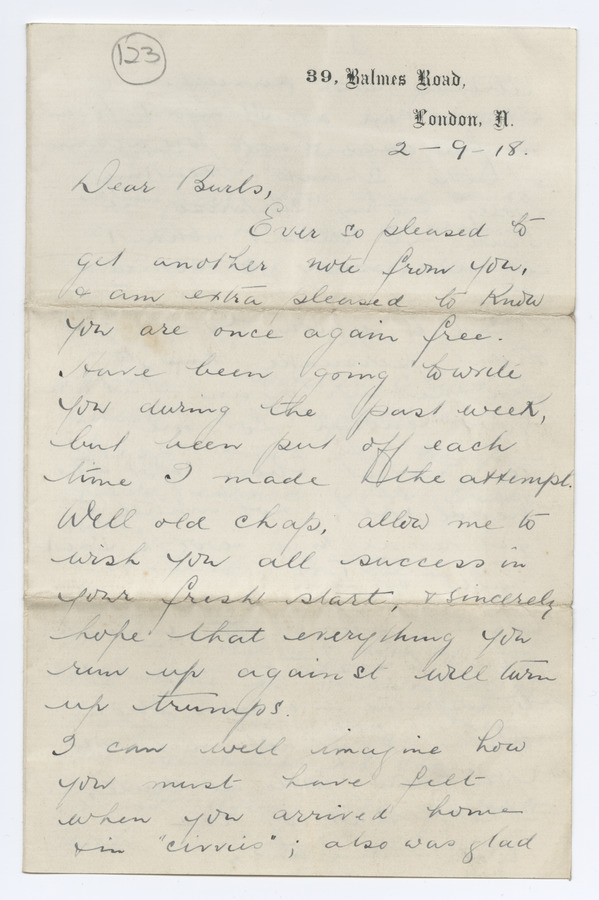 123
39, Balmes Road,
London, N.
2-9-18.
Dear Burls,
Ever so pleased to
get another note from you,
& am extra pleased to know
you are once again free.
Have been going to write
you during the past week,
but been put off each
time I made the attempt.
Well old chap, allow me to
wish you all success in
your fresh start, & sincerely
hope that everything you
run up against will turn
up trumps.
I can well imagine how
you must have felt
when you arrived home
& in "civvies"; also was glad